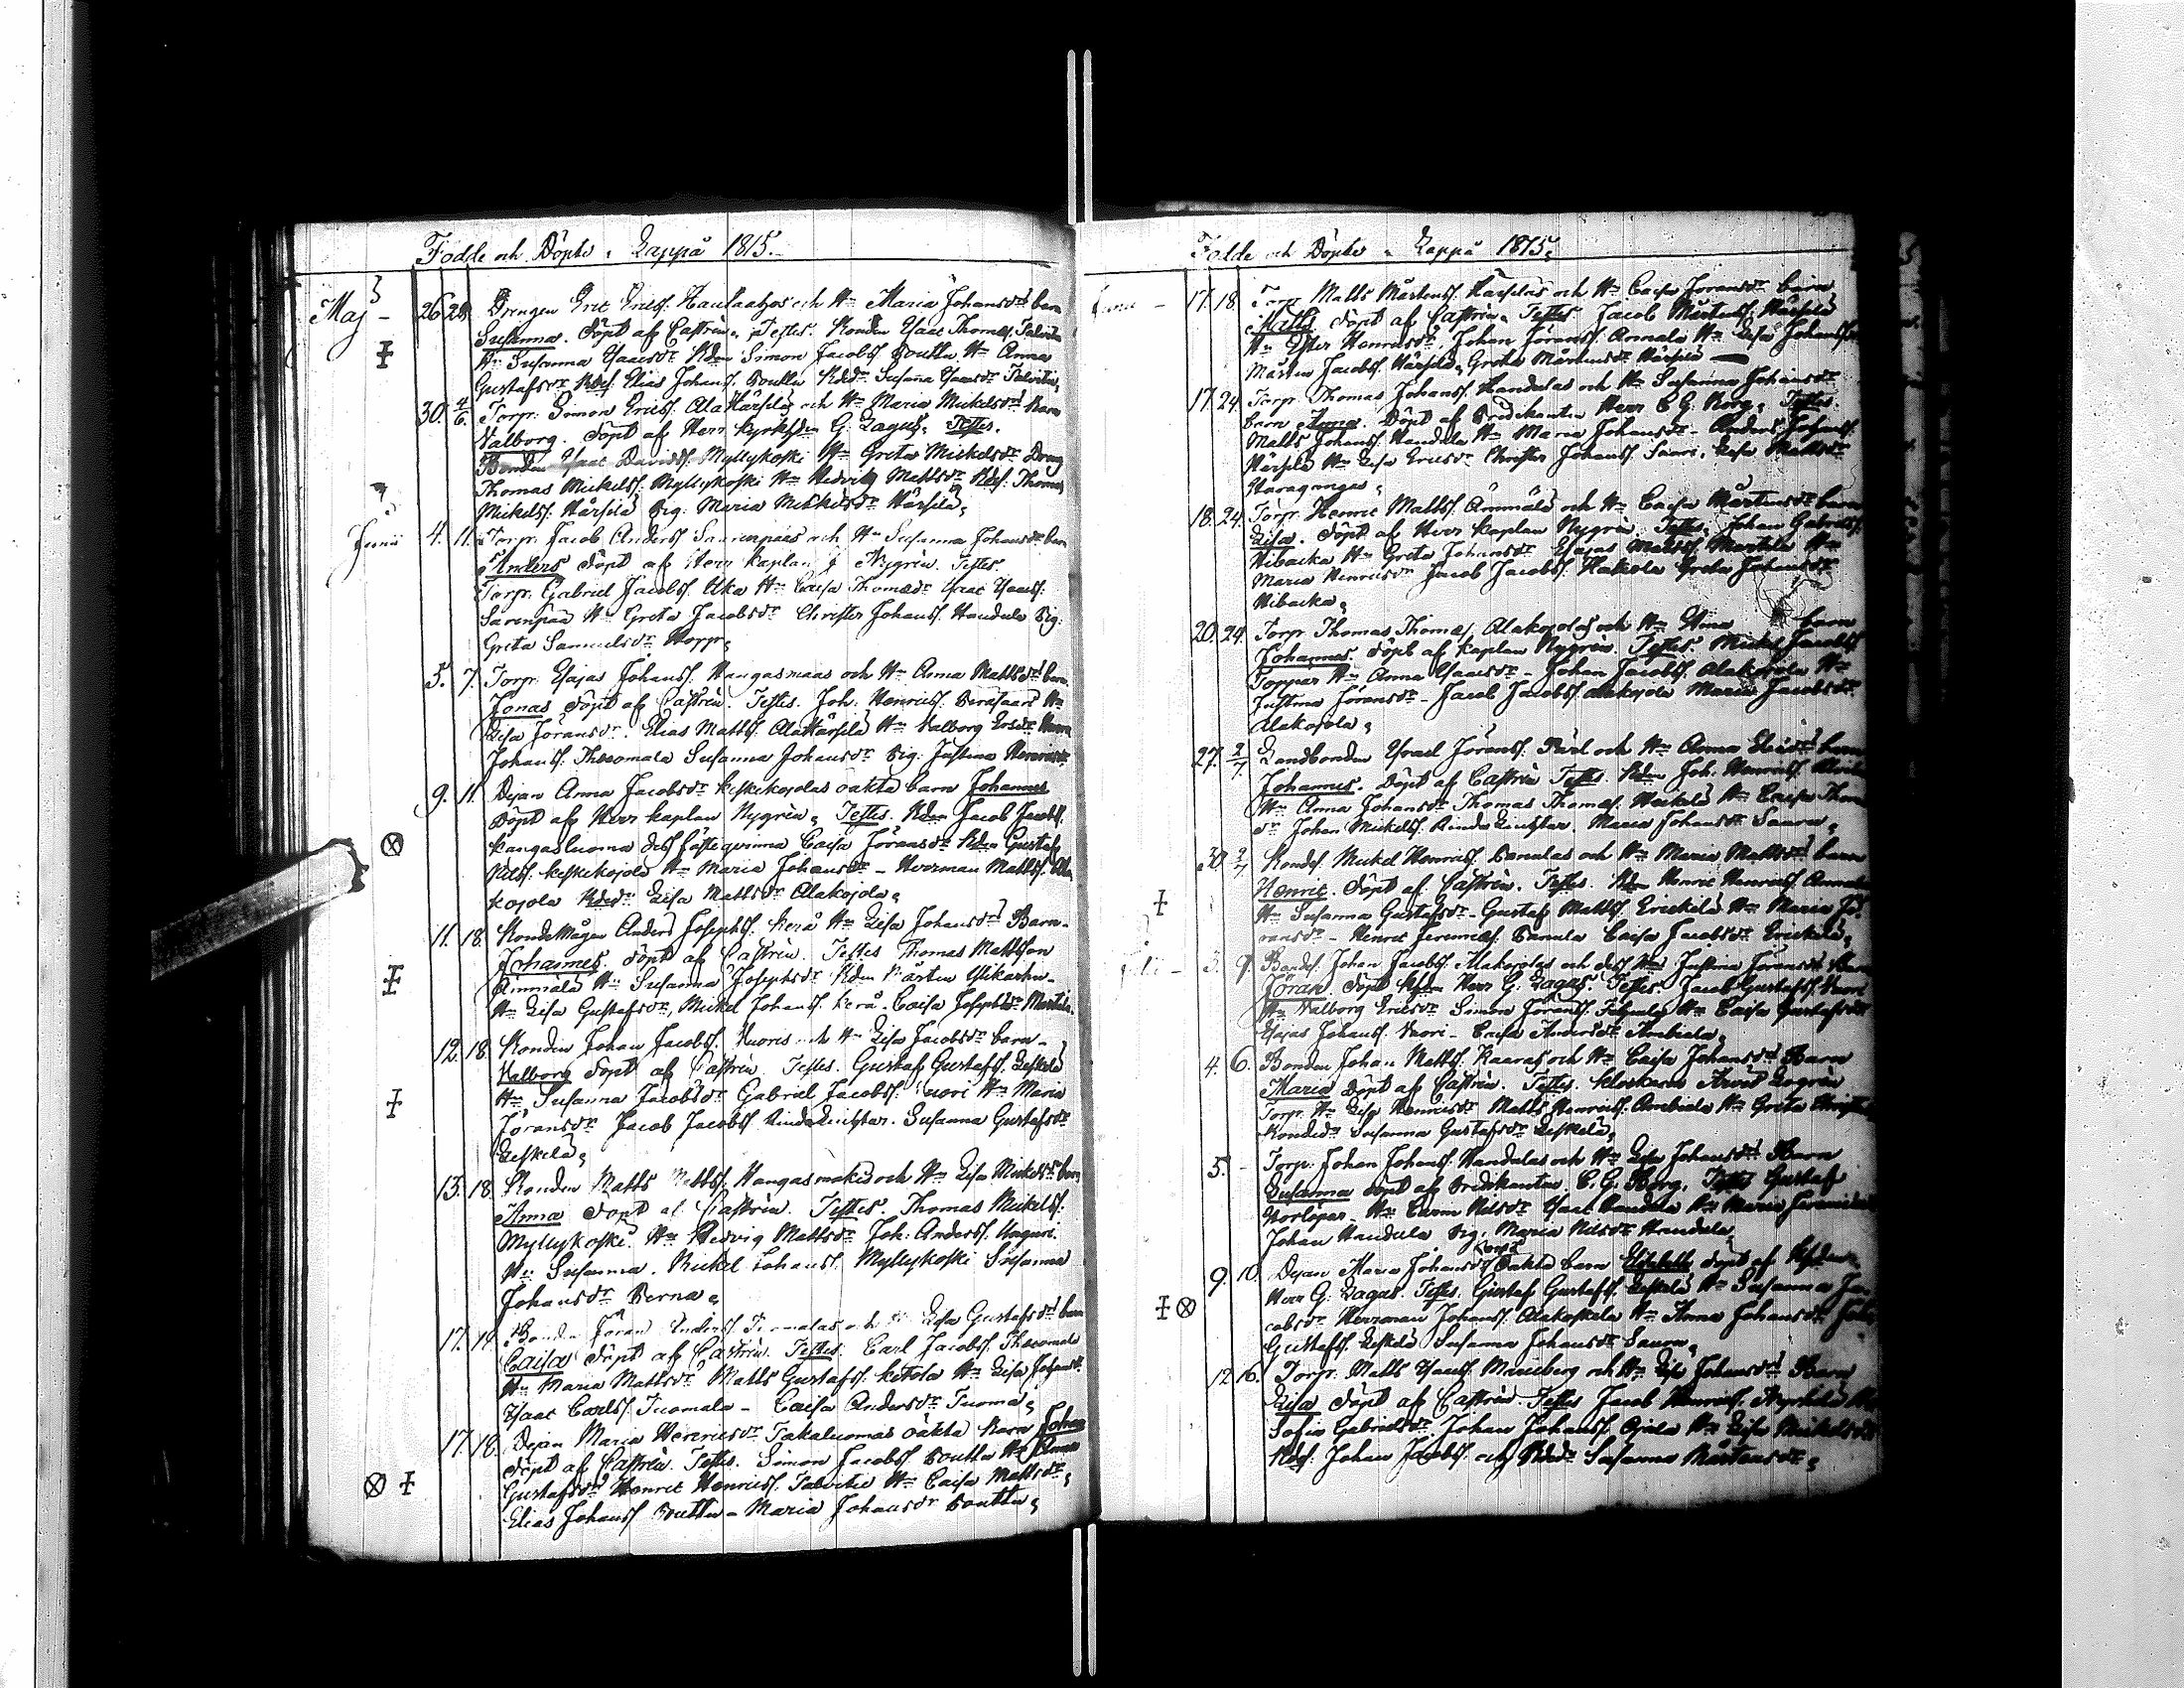 Födde och Döpte i Lappå 1815.
Maj - 26. 28. Drengen Eric Ericss. Hautaahos och H:u Maria Johansdr barn
Susanna. döpt af Castrén. Testes. Bonden Isaac Thomæss. Talvitie
H:u Susanna Isaacsdr Bden Simon Jacobss. Bouttu H:u Anna
Gustafsdr Bdes. Elias Johanss. Bouttu Bdedr Susanna Isaacsdr Talvitie,
30. 4/6. Torpr. Simon Ericss. AlaHärsilä och H:u Maria Mickelsdr Barn
Valborg. döpt af Herr Kyrkhden G. Lagus. Testes.
Bonden Isaac Davidss. Myllykoski H:u Greta Mickelsdr Dreng
Thomas Mickelss. Myllykoski H:u Hedvig Mattsdr Bdes. Thomas
Mickelss. Härsilä Pig. Maria Mickelsdr Härsilä,
Junii 4. 11. Torpr. Jacob Anderss Saarenpääs och H:u Susanna Johansdr barn
Anders döpt af Herr Kaplan J Nygrén. Testes.
Torpr. Gabriel Jacobss. Uka H:u Caisa Thomædr Isaac Isaacss.
Sarenpää H:u Greta Jacobsdr Christer Johanss. Handula Pig.
Greta Samuelsdr Hopp,
5. 7. Torpr. Esaias Johanss. Kangasmaas och H:u Anna Mattsdr barn.
Jonas döpt af Castrén. Testes. Joh. Henricss. Perasaari H:u
Lisa Jöransdr. Elias Mattss. AlaHärsilä H:u Valborg Ericsdr
Johanss. Thuomala Susanna Johansdr Pig. Justina Henricsdr
9. 11. Pigan Anna Jacobsdr Keskikojolas oäkta barn Johannes
Döpt af Herr Kaplan Nygrén. Testes. Bden Jacob Jacobss.
Kangasluoma dess fästeqvinna Caisa Jöransdr Bden Gustaf
Nilss. Keskikojola H:u Maria Johansdr - Herrman Mattss. Ala
kojola Bdedr Lisa Mattsdr Alakojola,
11. 18. Bondemågen Anders Josephss. Kerä H:u Lisa Johansdr Barn -
Johannes. döpt af Castrén. Testes Thomas Mattsson
Ämmälä H:u Susanna Josephsdr Bden Mårten Ylikarhu -
H:u Lisa Gustafsdr, Mickel Johanss. Kerä - Caisa Josephsdr Marttila.
12. 18. Bonden Johan Jacobss. Vuoris och H:u Lisa Jacobsdr barn -
Valborg döpt af Castrén. Testes. Gustaf Gustafss. Leskelä
H:u Susanna Jacobsdr Gabriel Jacobss. Vuori H:u Maria
Jöransdr Jacob Jacobss RindaLinchtar. Susanna Gustafsdr
Leskelä,
13. 18. Bonden Matts Mattss. Kangasmäkis och H:u Lisa Mickelsdr barn
Anna döpt af Castrén. Testes. Thomas Mickelss.
Myllykoski. H:u Hedvig Mattsdr Joh: Anderss. Unguri.
H:u Susanna. Mickel Johanss. Myllykoski Susanna
Johansdr Perna,
17. 19. Bonden Jöran Anderss. Tuomalas och H:u Lisa Gustafsdr barn
Caisa döpt af Castrén. Testes. Carl Jacobss. Thuomala
H:u Maria Mattsdr Matts Gustafss. Ketola H:u Lisa Johansdr
Isaac Carlss. Tuomala - Caisa Andersdr Tuoma,
17. 18. Pigan Maria Henricsdr Takaluomas oäkta barn Johan
döpt af Castrén. Testes. Simon Jacobss. Bouttu H:u Anna
Gustafsdr Henric Henricss. Talvitie H:u Caisa Mattsdr.
Elias Johanss Bouttu - Maria Johansdr Bouttu,
Födde och Döpte i Lappå 1815.
Junii - 17. 18. Torpr Matts Mårtenss. Härsiläs och H:u Caisa Jöransdr barn
Matts. döpt af Castrén. Testes Jacob Mårtenss. Härsilä
H:u Ester Henricsdr. Johan Jöranss. Annala H:u Lisa Johansdr
Mårten Jacobss. Härsilä, Greta Mårtensdr Härsilä
17. 24. Torpr Thomas Johanss. Handulas och H:u Susanna Johansdr
barn Anna. Döpt af Predikanten Herr C G. Borg, Testes.
Matts Johanss. Handula H:u Maria Johansdr - Anders Johanss.
Härsilä H:u Lisa Ericsdr Christer Johanss Saari. Lisa Mattsdr
Haragangas,
18. 24. Torpr Henric Mattss. Ämmälä och H:u Caisa Mårtensdr barn
Lisa. döpt af Herr Kaplan Nygrén. Testes. Johan Gabrielss.
Hibacka H:u Greta Johansdr Esaias Mattss. Marttila H:u
Maria Henricsdr Jacob Jacobss. Hakola Greta Johansdr
Hibacka,
20. 24. Torpr Thomas Thomæss. Alakojolas och H:u Anna barn
Johannes. döpt af Kaplan Nygrén. Testes. Mickel Jacobss
Toppar H:u Anna Isaacsdr - Johan Jacobss. Alakojola H:u
Justina Jöransdr - Jacob Jacobss Alakojola Maria Jacobsdr
Alakojola,
27. 2/7. Landbonden Israel Jöranss. Pärl och H:u Anna Eliædr barn
Johannes. döpt af Castrén Testes. Bden Joh. Henricss.
H:u Anna Johansdr Thomas Thomæss. Heikkilä H:u Caisa Thomæ
dr Johan Mickelss. RindaLinchtar. Maria Johansdr Saara,
30. 2/7 Bondes. Mickel Henricss. Panulas och H:u Maria Mattsdr barn
Henric. döpt af Castrén. Testes. Bden Henric Henricss. Annala
H:u Susanna Gustafsdr - Gustaf Mattss. Erickilä H:u Maria Jö-
ransdr - Henric Jeremiæss. Panula Caisa Jacobsdr Erickilä,
Julii - 3. 9. Bondes. Johan Jacobss. Alakojolas och dess H:u Justina Jöransdr barn
Jöran. döpt Khden Herr G. Lagus. Testes. Jacob Gustafss. Vuori
H:u Valborg Ericsdr Simon Jöranss. H:u Caisa Gustafsdr
Esaias Johanss. Vuori - Caisa Andersdr Ambiala,
4. 6. Bonden Johan Mattss. Kaaras och H:u Caisa Johansdr Barn
Maria döpt af Castrén. Testes. Klockaren Arvid Logrén
Torpr H:u Lisa Henricsdr Matts Henricss. Ambiala H:u Greta
Bondedr Susanna Gustafsdr Leskelä,
5. - Torpr. Johan Johanss. Handulas och H:u Lisa Johansdr Barn
Susanna döpt af Predikanten C. G. Borg, Testes Gustaf
Storlöpar. H:u Carin Nilsdr Isaac Handula H:u Maria Jeremiædr
Johan Handula Pig. Maria Nilsdr Handula,
9. 10. Pigan Maria Johansdr Oäkta barn döpt af Khden
Herr G. Lagus. Testes. Gustaf Gustafss. Leskelä H:u Susanna Ja-
cobsdr. Herrman Johanss. Alakoskela H:u Anna Johansdr
Gustafss. Leskelä Susanna Johansdr Saura,
12. 16. Torpr. Matts Isaacss. Mauiberg och H:u Lisa Johansdr Barn
Lisa döpt af Castrén. Testes Jacob Henricss. H:u
Sofia Gabrielsdr Johan Johanss. Ojala H:u Lisa Mickelsdr
Bdes. Johan Jacobss. och Bdedr Susanna Mårtensdr,